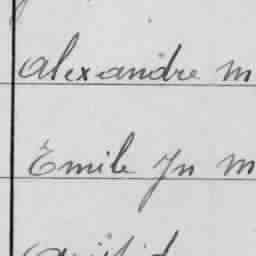 Alexandre M
Emile Jn M